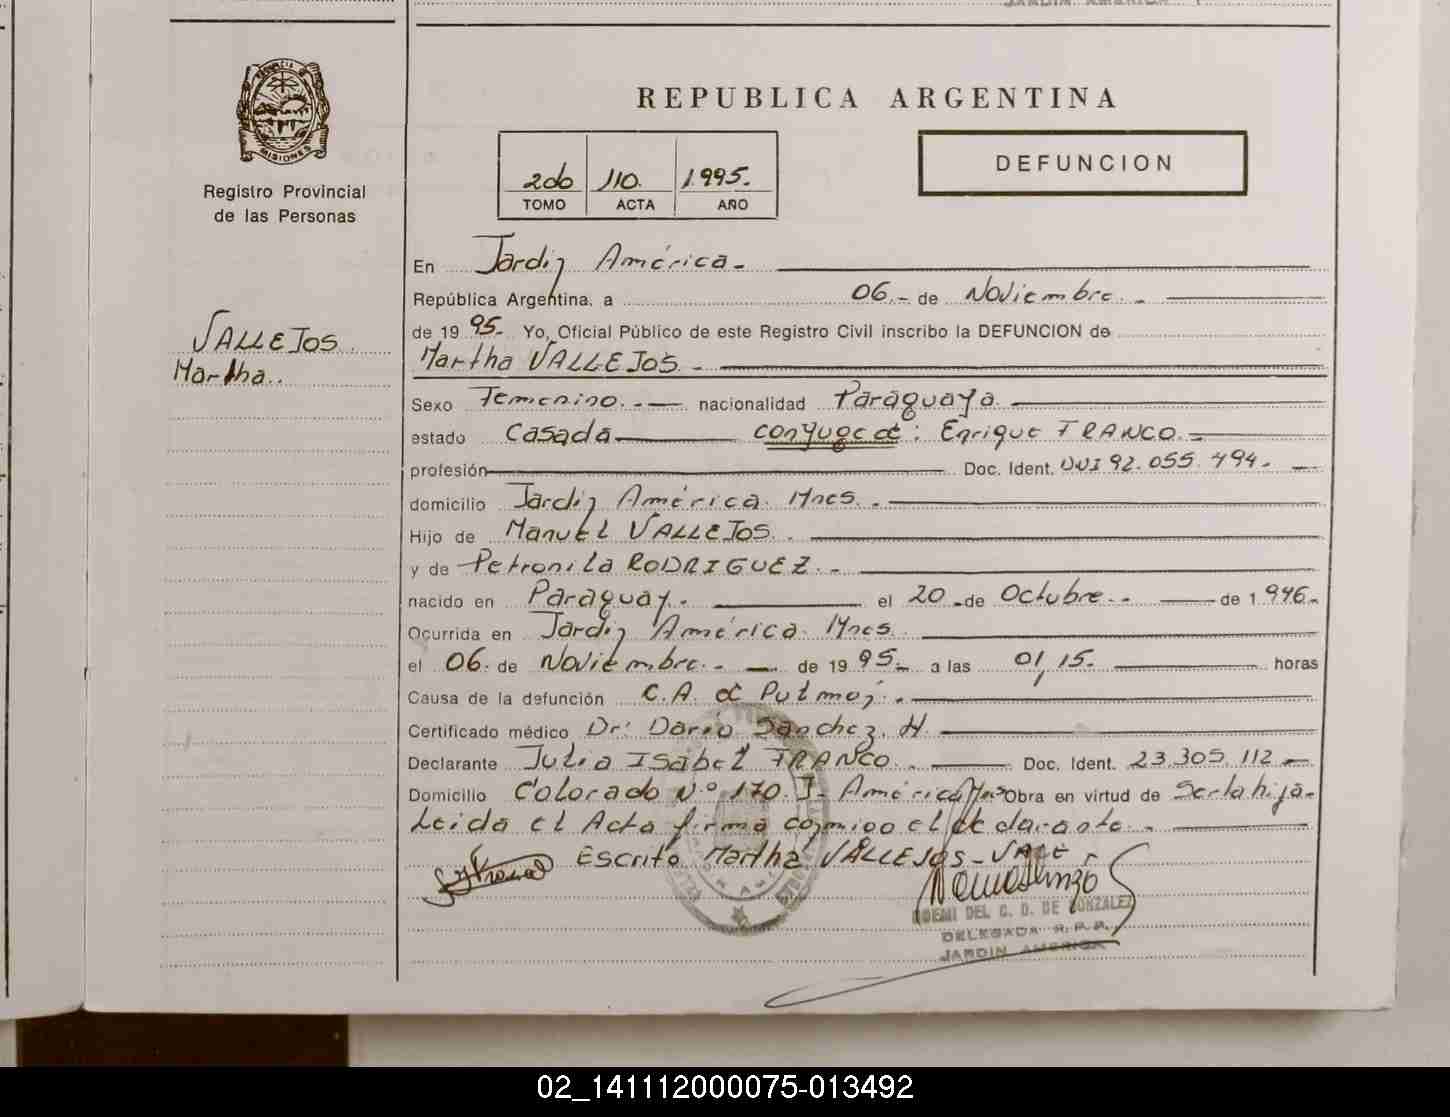 JARDIN AMERICA
MISIONES
Registro Provincial
de las Personas
VALLEJOS
Martha..
REPUBLICA ARGENTINA
2do 110. 1.995.
TOMO ACTA AÑO
DEFUNCION
En Jardin América.-
República Argentina, a 06.- de Noviembre.-
de 19 95.- Yo, Oficial Público de este Registro Civil inscribo la DEFUNCION de
Martha VALLEJOS.-
Sexo Femenino.-- nacionalidad Paraguaya.
estado Casada conyuge de: Enrique FRANCO.-
profesión Doc. Ident. DNI 92.055.494.-
domicilio Jardin América. Mnes..-
Hijo de Manuel VALLEJOS..
y de Petronila RODRIGUEZ.-
nacido en Paraguay.- el 20.- de Octubre.-- de 1.946.-
Ocurrida en Jardin América. Mnes.
el 06. de Noviembre.- de 19 95.- a las 01,15. horas
Causa de la defunción C.A. de Pulmon.-
Certificado médico Dr: Dario Sanchez. H.
Declarante Julia Isabel FRANCO.. Doc. Ident. 23.305.112.-
Domicilio Colorado N.º 170. J- América Mnes Obra en virtud de Ser la hija.-
Leida el Acta firma conmigo el declarante.-
Escrito Martha VALLEJOS-VALE
NOEMI DEL C. D. DE GONZALEZ
DELEGADA R.P.P.
JARDIN AMERICA
02_141112000075-013492